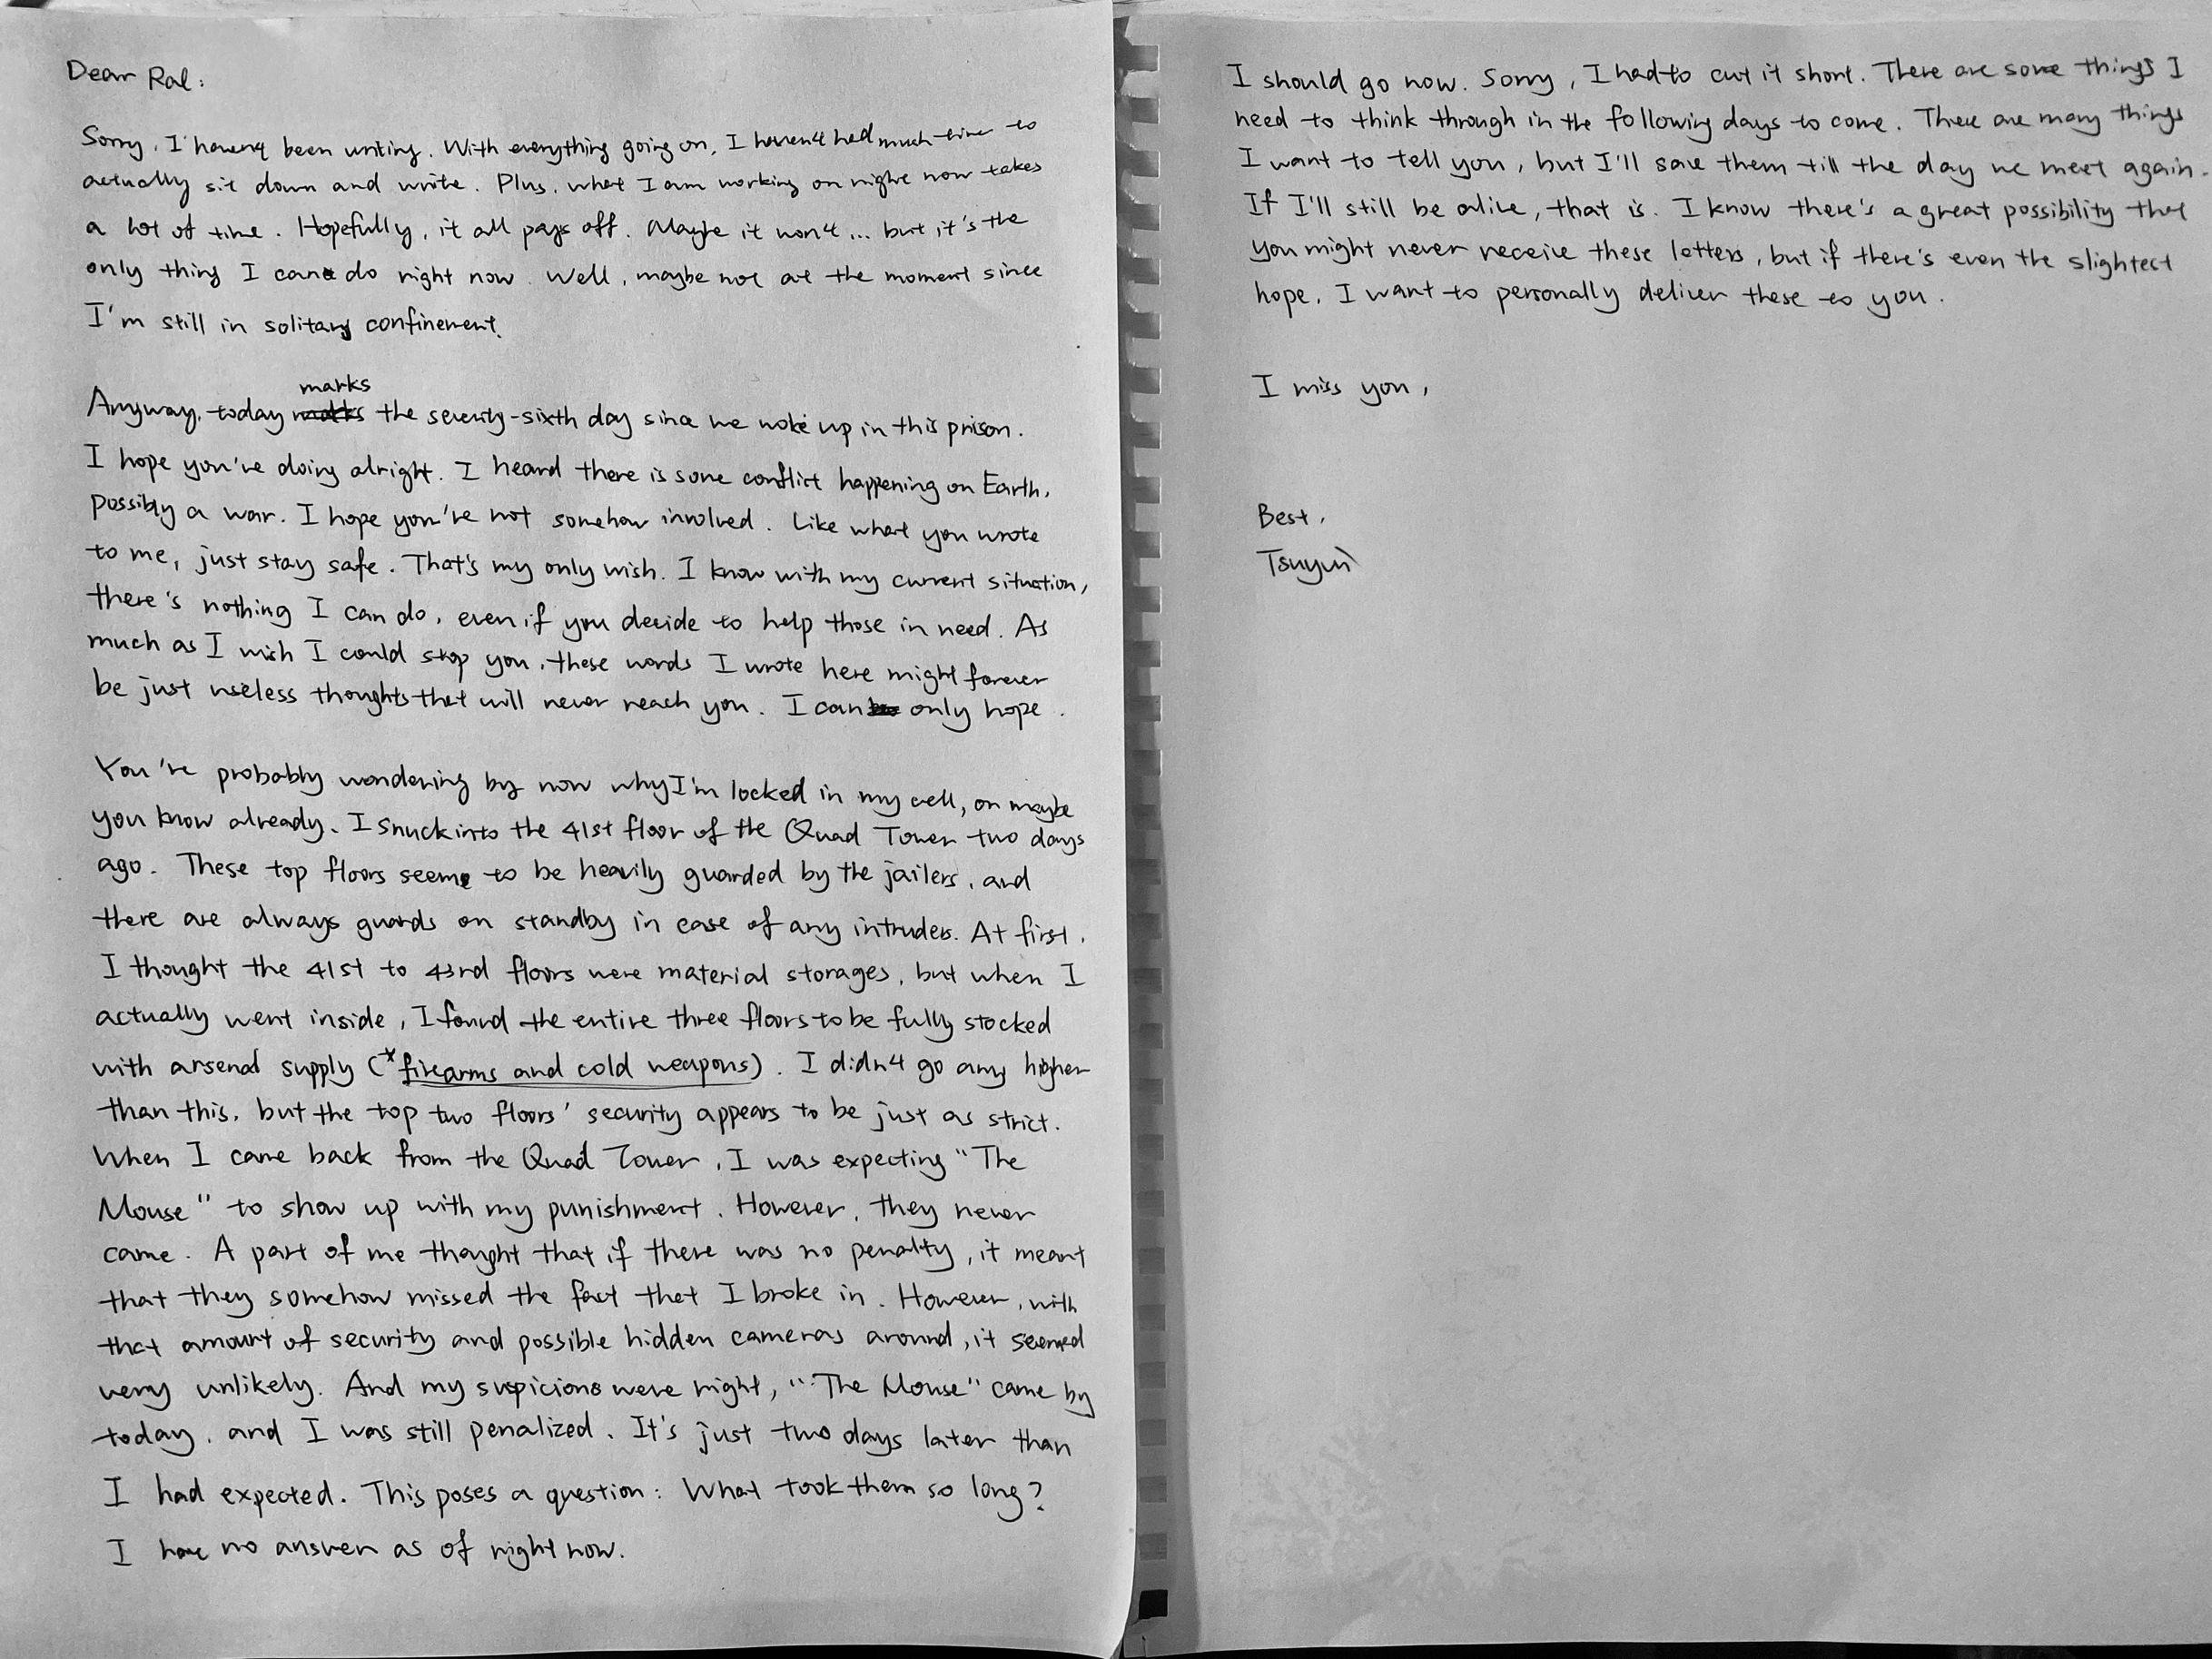 Dear Ral:
Sorry, I haven't been writing. With everything going on, I haven't had much time to
actually sit down and write. Plus, what I am working on right now takes
a lot of time. Hopefully, it all pays off. Maybe it won't... but it's the
only thing I can do right now. Well, maybe not at the moment since
I'm still in solitary confinement.
marks
Anyway, today the seventy-sixth day since we woke up in this prison.
I hope you're doing alright. I heard there is some conflict happening on Earth,
possibly a war. I hope you're not somehow involved. Like what you wrote
to me, just stay safe. That's my only wish. I know with my current situation,
there's nothing I can do, even if you decide to help those in need. As
much as I wish I could stop you, these words I wrote here might forever
be just useless thoughts that will never reach you. I can only hope.
You're probably wondering by now why I'm locked in my cell, or maybe
you know already. I snuck into the 41st floor of the Quad Tower two days
ago. These top floors seem to be heavily guarded by the jailers, and
there are always guards on standby in case of any intruders. At first,
I thought the 41st to 43rd floors were material storages, but when I
actually went inside, I found the entire three floors to be fully stocked
with arsenal supply (*firearms and cold weapons). I didn't go any higher
than this, but the top two floors' security appears to be just as strict.
When I came back from the Quad Tower, I was expecting "The
Mouse" to show up with my punishment. However, they never
came. A part of me thought that if there was no penalty, it meant
that they somehow missed the fact that I broke in. However, with
that amount of security and possible hidden cameras around, it seemed
very unlikely. And my suspicions were right, "The Mouse" came by
today, and I was still penalized. It's just two days later than
I had expected. This poses a question: What took them so long?
I have no answer as of right now.
I should go now. Sorry, I had to cut it short. There are some things I
need to think through in the following days to come. There are many things
I want to tell you, but I'll save them till the day we meet again.
If I'll still be alive, that is. I know there's a great possibility that
you might never receive these letters, but if there's even the slightest
hope, I want to personally deliver these to you.
I miss you,
Best,